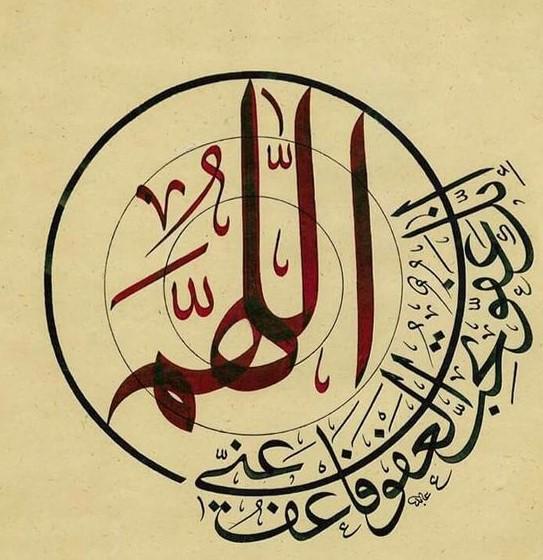 اللّٰهمّ
إنّك عفوّ تحبّ العفو فاعف عنّي